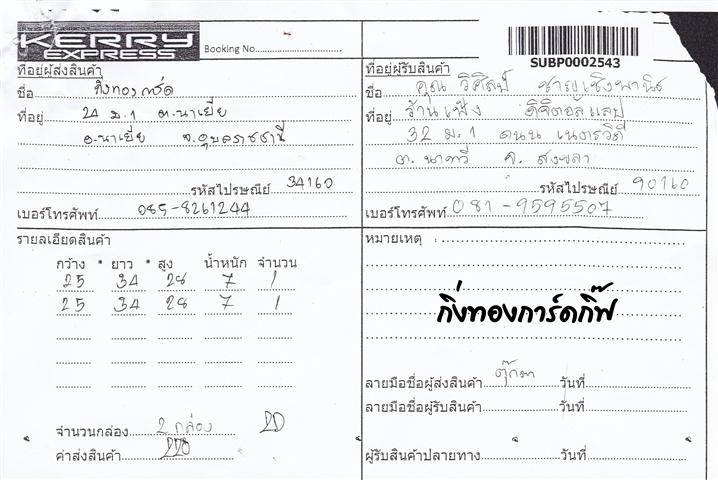 KERRY
EXPRESS
Booking No.
SUBP0002543
ที่อยู่ผู้ส่งสินค้า
ชื่อ กิ่งทองการ์ด
ที่อยู่ 24 ม.1 ต.นาเยีย
อ.นาเยีย จ.อุบลราชธานี
รหัสไปรษณีย์ 34160
เบอร์โทรศัพท์ 085-8261244
ที่อยู่ผู้รับสินค้า
ชื่อ คุณ วิศิลป์ ชาญเชิงพานิช
ที่อยู่ ร้านเฟิ่ง ดิจิตอลแลป
32 ม.1 ถนน เนตรวิดี
ต. นาทวี จ. สงขลา
รหัสไปรษณีย์ 90160
เบอร์โทรศัพท์ 081-9595507
รายละเอียดสินค้า
กว้าง * ยาว * สูง น้ำหนัก จำนวน
25 34 28 7 1
25 34 28 7 1
จำนวนกล่อง 2 กล่อง
ค่าส่งสินค้า 220
หมายเหตุ :
กิ่งทองการ์ดกิ๊ฟ
ลายมือชื่อผู้ส่งสินค้า ตุ๊กตา วันที่
ลายมือชื่อผู้รับสินค้า วันที่
ผู้รับสินค้าปลายทาง วันที่